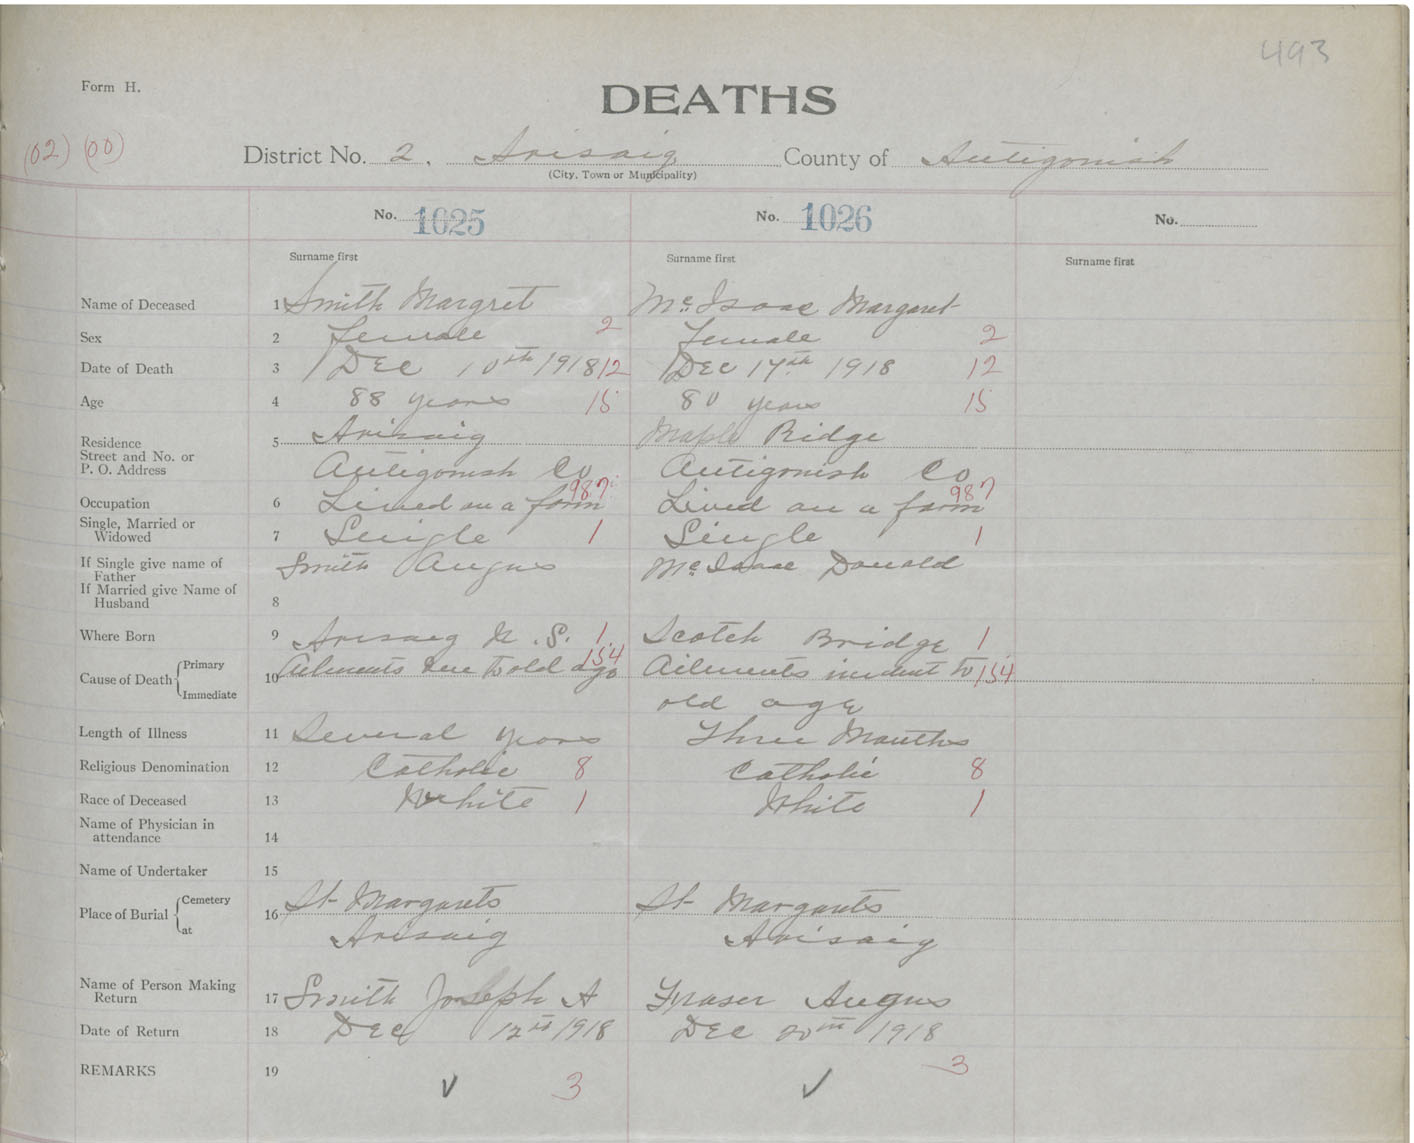 493
Form H.
DEATHS
(02) (00)
District No. 2. Arisaig County of Antigonish
(City, Town or Municipality)
No. 1025 No. 1026 No.
Surname first Surname first Surname first
Name of Deceased 1 Smith Margret McIsaac Margaret
Sex 2 female 2 female 2
Date of Death 3 Dec 10th 1918 12 Dec 17th 1918 12
Age 4 88 years 15 80 years 15
Residence 5 Arisaig Maple Ridge
Street and No. or
P. O. Address Antigonish Co Antigonish Co
987 987
Occupation 6 Lived on a farm Lived on a farm
Single, Married or
Widowed 7 Single 1 Single 1
If Single give name of
Father Smith Angus McIsaac Donald
If Married give Name of
Husband 8
Where Born 9 Arisaig N.S. 1 Scotch Bridge 1
Cause of Death Primary 10 Ailments due to old age 154 Ailments incident to 154
Immediate old age
Length of Illness 11 Several years Three Months
Religious Denomination 12 Catholic 8 Catholic 8
Race of Deceased 13 White 1 White 1
Name of Physician in
attendance 14
Name of Undertaker 15
Place of Burial Cemetery 16 St Margarets St Margarets
at Arisaig Arisaig
Name of Person Making
Return 17 Smith Joseph A Fraser Angus
Date of Return 18 Dec 12th 1918 Dec 20th 1918
REMARKS 19
3 3